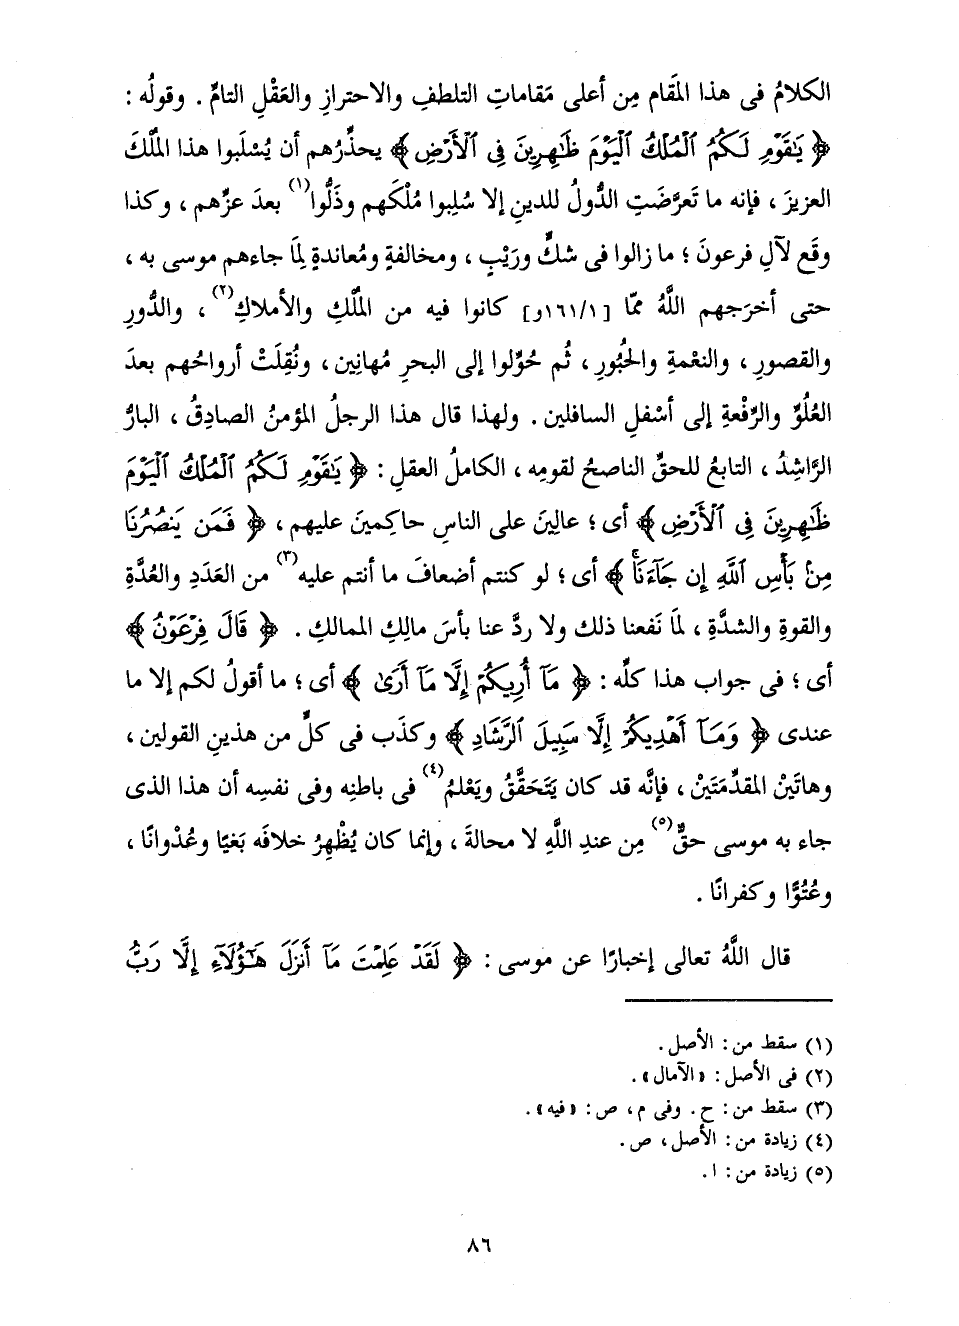 الكلامُ فى هذا المَقام مِن أعلى مَقاماتِ التلطفِ والاحترازِ والعَقْلِ التامِّ . وقولُه :
﴿ يَٰقَوْمِ لَكُمُ ٱلْمُلْكُ ٱلْيَوْمَ ظَٰهِرِينَ فِى ٱلْأَرْضِ ﴾ يحذِّرُهم أن يُسْلَبوا هذا المُلْكَ
العزيزَ ، فإنه ما تَعرَّضَتِ الدُّولُ للدينِ إلا سُلِبوا مُلْكَهم وذَلُّوا(١) بعدَ عزِّهم ، وكذا
وقَع لآلِ فرعونَ ؛ ما زالوا فى شكٍّ ورَيْبٍ ، ومخالفةٍ ومُعاندةٍ لِمَا جاءهم موسى به ،
حتى أخرَجهم اللَّهُ ممّا [١٦١/١و] كانوا فيه من المُلْكِ والأملاكِ(٢) ، والدُّورِ
والقصورِ ، والنعْمةِ والحُبُورِ ، ثُم حُوِّلوا إلى البحرِ مُهانِين ، ونُقِلَتْ أرواحُهم بعدَ
العُلُوِّ والرِّفْعةِ إلى أسْفلِ السافلين . ولهذا قال هذا الرجلُ المؤمنُ الصادِقُ ، البارُّ
الرَّاشِدُ ، التابعُ للحقِّ الناصحُ لقومِه ، الكاملُ العقلِ : ﴿ يَٰقَوْمِ لَكُمُ ٱلْمُلْكُ ٱلْيَوْمَ
ظَٰهِرِينَ فِى ٱلْأَرْضِ ﴾ أى ؛ عالِينَ على الناسِ حاكِمينَ عليهم ، ﴿ فَمَن يَنصُرُنَا
مِنۢ بَأْسِ ٱللَّهِ إِن جَآءَنَا ﴾ أى ؛ لو كنتم أضعافَ ما أنتم عليه(٣) من العَدَدِ والعُدَّةِ
والقوةِ والشدَّةِ ، لمَا نَفعنا ذلك ولا ردَّ عنا بأسَ مالِكِ الممالكِ . ﴿ قَالَ فِرْعَوْنُ ﴾
أى ؛ فى جواب هذا كلِّه : ﴿ مَآ أُرِيكُمْ إِلَّا مَآ أَرَىٰ ﴾ أى ؛ ما أقولُ لكم إلا ما
عندى ﴿ وَمَآ أَهْدِيكُمْ إِلَّا سَبِيلَ ٱلرَّشَادِ ﴾ وكذَب فى كلٍّ من هذينِ القولين ،
وهاتَيْنْ المقدِّمَتَينْ ، فإنَّه قد كان يَتَحَقَّقُ ويَعْلمُ(٤) فى باطنِه وفى نفسِه أن هذا الذى
جاء به موسى حقٌّ(٥) مِن عندِ اللَّهِ لا محالةَ ، وإنما كان يُظْهِرُ خلافَه بَغيًا وعُدْوانًا ،
وعُتُوًّا وكفرانًا .
قال اللَّهُ تعالى إخبارًا عن موسى : ﴿ لَقَدْ عَلِمْتَ مَآ أَنزَلَ هَٰٓؤُلَآءِ إِلَّا رَبُّ
(١) سقط من : الأصل .
(٢) فى الأصل : «الآمال» .
(٣) سقط من : ح . وفى م ، ص : «فيه» .
(٤) زيادة من : الأصل ، ص .
(٥) زيادة من : ا .
٨٦